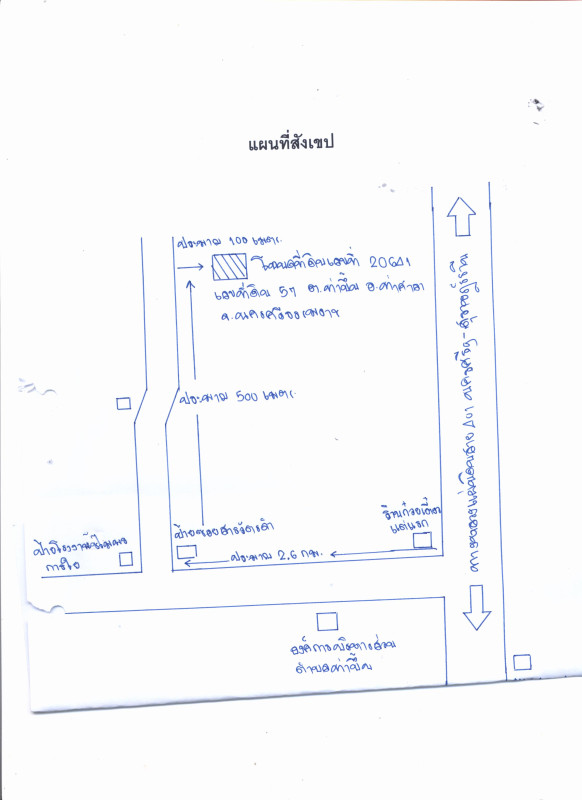 แผนที่สังเขป
ประมาณ 100 เมตร
โฉนดที่ดินเลขที่ 20641
เลขที่ดิน 57 ต.ท่าขึ้น อ.ท่าศาลา
จ.นครศรีธรรมราช
ประมาณ 500 เมตร
ร้านก๋วยเตี๋ยว
ป้ายซอยสารวัตรดำ
ประมาณ 2.6 กม.
องค์การบริหารส่วน
ตำบลท่าขึ้น
ทางหลวงแผ่นดินสาย 401 นครศรีฯ-สุราษฎร์ธานี